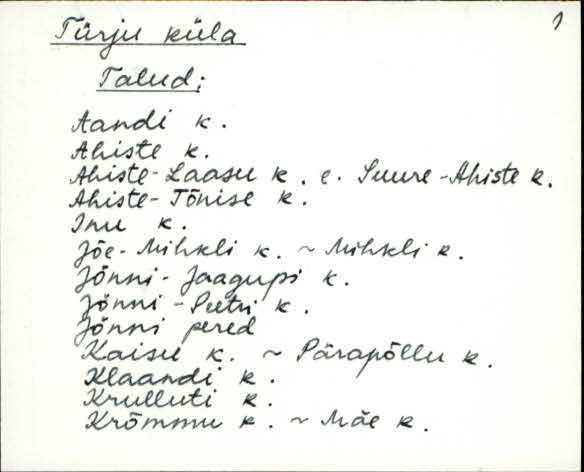 1
Türju küla
Talud;
Aandi k.
Ahiste k.
Ahiste-Laasu k. e. Suure-Ahiste k.
Ahiste-Tõnise k.
Inu k.
Jõe-Mihkli k. ~ Mihkli k.
Jõnni-Jaagupi k.
Jõnni-Peetri k.
Jõnni pered
Kaisu k. ~ Pärapõllu k.
Klaandi k.
Krulluti k.
Krõmmu k. ~ Mäe k.